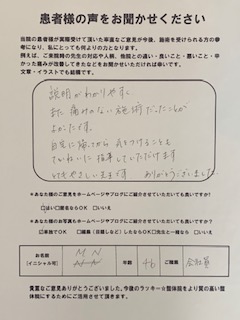 患者様の声をお聞かせください
当院の患者様が実際受けて頂いた率直なご意見が今後、施術を受けられる方の参
考になり、私にとっても何よりの力となります。
例えば、ご来院時の先生の対応や人柄、他院との違い・良いこと・悪いこと・辛
かった痛みが改善してきたなどをお聞かせいただければ幸いです。
文章・イラストでも結構です。
説明がわかりやすく
また 痛みのない施術だったことが
よかったです。
自宅に帰ってから 気をつけることも
ていねいに指導していただけます
ありがとうございました
※あなた様のご意見をホームページやブログにご紹介させていただいても良いですか?
□はい □匿名ならOK □いいえ
※あなた様のお写真もホームページやブログにご紹介させていただいても良いですか?
☑本独でOK □編集(目隠しなど)したならOK □先生と一緒なら □いいえ
お名前
(イニシャル可)
M N
年齢
46
ご職業
会社員
貴重なご意見ありがとうございました。今後のラッキー☆整体院をより質の高い整
体院にするためにご活用させて頂きます。